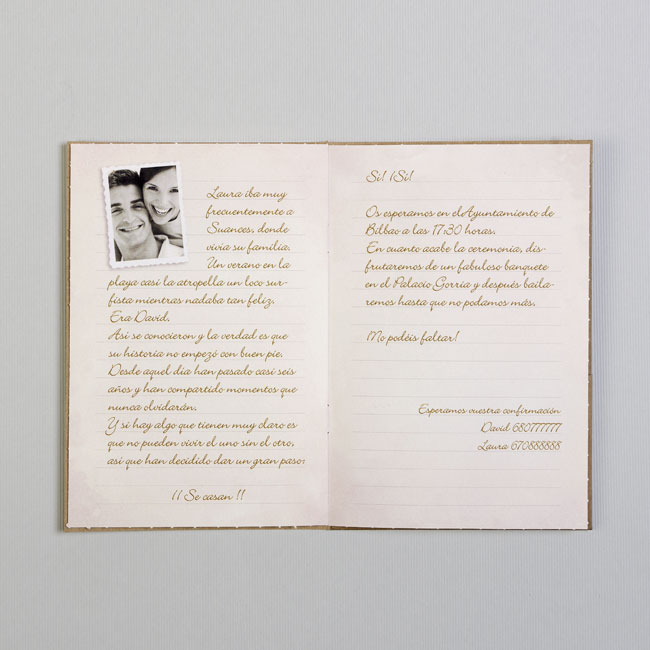 Laura iba muy
frecuentemente a
Suances, donde
vivia su familia.
Un verano en la
playa casi la atropella un loco sur-
fista mientras nadaba tan feliz.
Era David.
Así se conocieron y la verdad es que
su historia no empezó con buen pie.
Desde aquel dia han pasado casi seis
años y han compartido momentos que
nunca olvidarán.
Y si hay algo que tienen muy claro es
que no pueden vivir el uno sin el otro,
asi que han decidido dar un gran paso:
¡¡ Se casan !!
Si! ¡Si!
Os esperamos en el Ayuntamiento de
Bilbao a las 17:30 horas.
En cuanto acabe la ceremonia, dis-
frutaremos de un fabuloso banquete
en el Palacio Gorria y después baila-
remos hasta que no podamos más.
No podéis faltar!
Esperamos vuestra confirmación
David 680777777
Laura 670888888